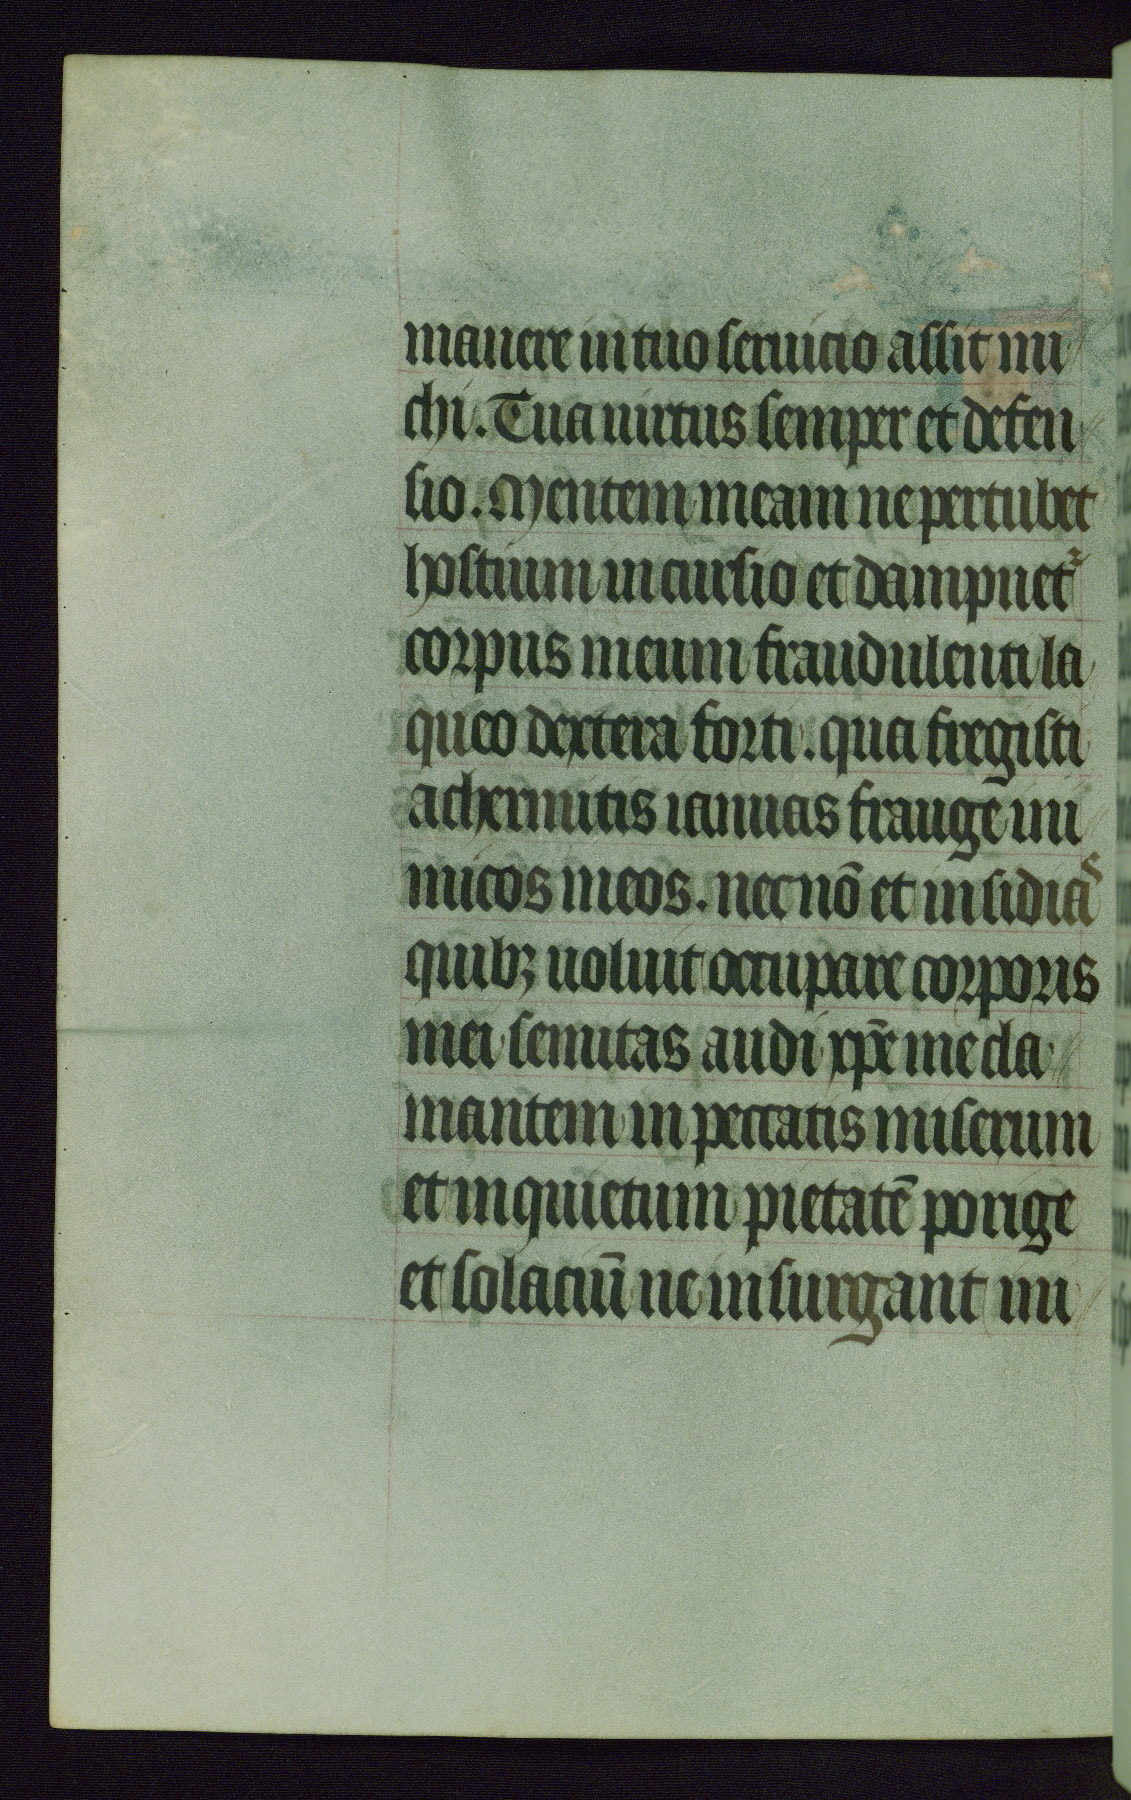 manere in tuo seruicio assit mi
chi. Tua uirtus semper et defen
sio. Mentem meam ne pertubet
hostium incursio et dampnet᷑
corpus meum fraudulenti la
queo dextera forti. qua fregisti
achermitis ianuas frange ini
micos meos. nec nō et insidias
quibꝫ uoluit occupare corporis
mei semitas audi xp̄e me cla
mantem in peccatis miserum
et inquietum pietatē porige
et solaciū ne insurgant ini